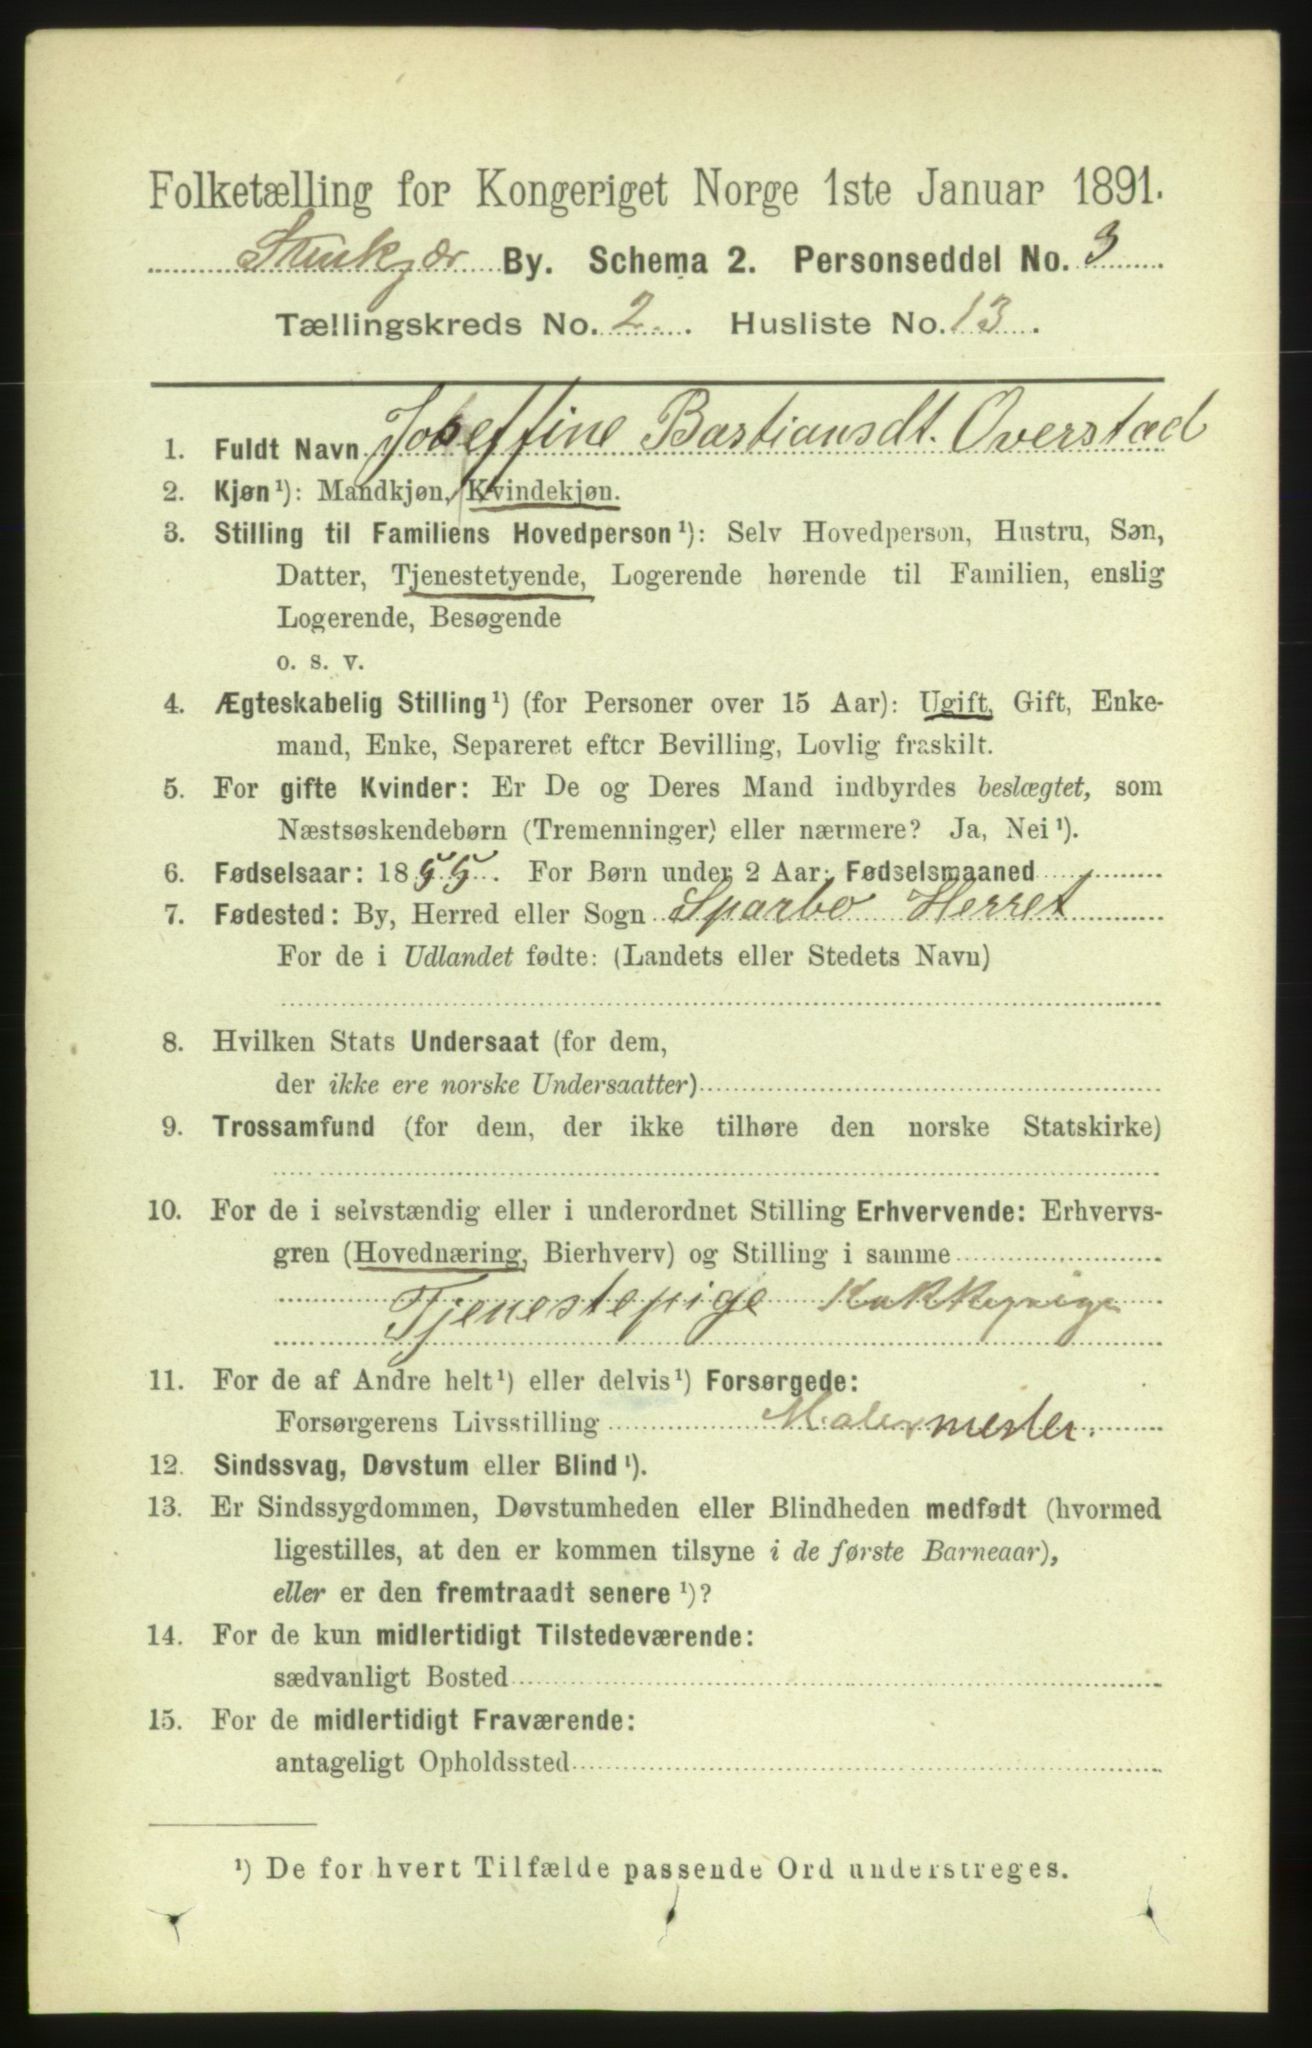 Folketælling for Kongeriget Norge 1ste Januar 1891.
Stenkjær By. Schema 2. Personseddel No. 3
Tællingskreds No. 2. Husliste No. 13.
1. Fuldt Navn Joseffine Bastiansdt. Overstad
2. Kjøn¹): Mandkjøn, Kvindekjøn.
3. Stilling til Familiens Hovedperson¹): Selv Hovedperson, Hustru, Søn,
Datter, Tjenestetyende, Logerende hørende til Familien, enslig
Logerende, Besøgende
o. s. v.
4. Ægteskabelig Stilling¹) (for Personer over 15 Aar): Ugift, Gift, Enke-
mand, Enke, Separeret efter Bevilling, Lovlig fraskilt.
5. For gifte Kvinder: Er De og Deres Mand indbyrdes beslægtet, som
Næstsøskendebørn (Tremenninger) eller nærmere? Ja, Nei¹).
6. Fødselsaar: 1855. For Børn under 2 Aar: Fødselsmaaned
7. Fødested: By, Herred eller Sogn Sparbo Herret
For de i Udlandet fødte: (Landets eller Stedets Navn)
8. Hvilken Stats Undersaat (for dem,
der ikke ere norske Undersaatter)
9. Trossamfund (for dem, der ikke tilhøre den norske Statskirke)
10. For de i selvstændig eller i underordnet Stilling Erhvervende: Erhvervs-
gren (Hovednæring, Bierhverv) og Stilling i samme
Tjenestepige Kokkepige
11. For de af Andre helt¹) eller delvis¹) Forsørgede:
Forsørgerens Livsstilling Malermester.
12. Sindssvag, Døvstum eller Blind¹).
13. Er Sindssygdommen, Døvstumheden eller Blindheden medfødt (hvormed
ligestilles, at den er kommen tilsyne i de første Barneaar),
eller er den fremtraadt senere¹)?
14. For de kun midlertidigt Tilstedeværende:
sædvanligt Bosted
15. For de midlertidigt Fraværende:
antageligt Opholdssted
¹) De for hvert Tilfælde passende Ord understreges.